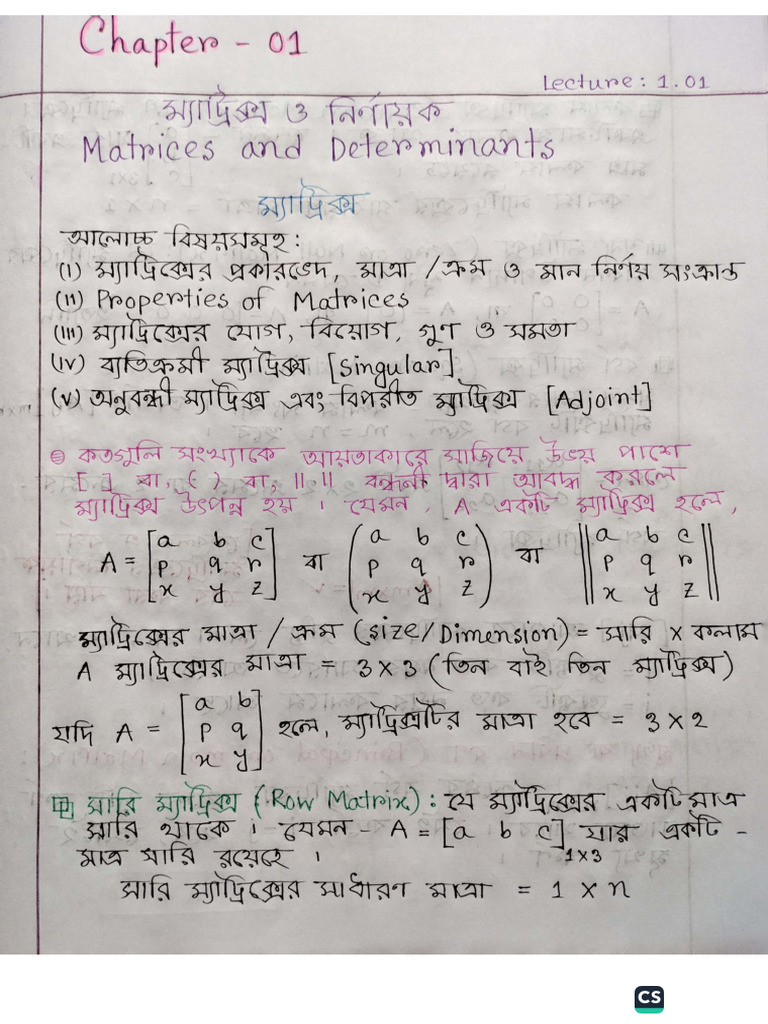 Chapter - 01
Lecture: 1.01
ম্যাট্রিক্স ও নির্ণায়ক
Matrices and Determinants
ম্যাট্রিক্স
আলোচ্চ বিষয়সমূহ:
(I) ম্যাট্রিক্সের প্রকারভেদ, মাত্রা /ক্রম ও মান নির্ণয় সংক্রান্ত
(II) Properties of Matrices
(III) ম্যাট্রিক্সের যোগ, বিয়োগ, গুণ ও সমতা
(IV) ব্যতিক্রমী ম্যাট্রিক্স [Singular]
(V) অনুবন্ধী ম্যাট্রিক্স এবং বিপরীত ম্যাট্রিক্স [Adjoint]
কতগুলি সংখ্যাকে আয়তাকারে সাজিয়ে উভয় পাশে
[ ] বা, ( ) বা, || || বন্ধনী দ্বারা আবদ্ধ করলে
ম্যাট্রিক্স উৎপন্ন হয় । যেমন, A একটি ম্যাট্রিক্স হলে,
A = [a b c] বা (a b c) বা ||a b c||
[p q r] (p q r) ||p q r||
[x y z] (x y z) ||x y z||
ম্যাট্রিক্সের মাত্রা / ক্রম (size/Dimension) = সারি × কলাম
A ম্যাট্রিক্সের মাত্রা = 3 × 3 (তিন বাই তিন ম্যাট্রিক্স)
[a b]
যদি A = [p q] হলে, ম্যাট্রিক্সটির মাত্রা হবে = 3 × 2
[x y]
সারি ম্যাট্রিক্স (Row Matrix): যে ম্যাট্রিক্সের একটিমাত্র
সারি থাকে । যেমন - A = [a b c] যার একটি -
1×3
মাত্র সারি রয়েছে ।
সারি ম্যাট্রিক্সের সাধারণ মাত্রা = 1 × n
CS